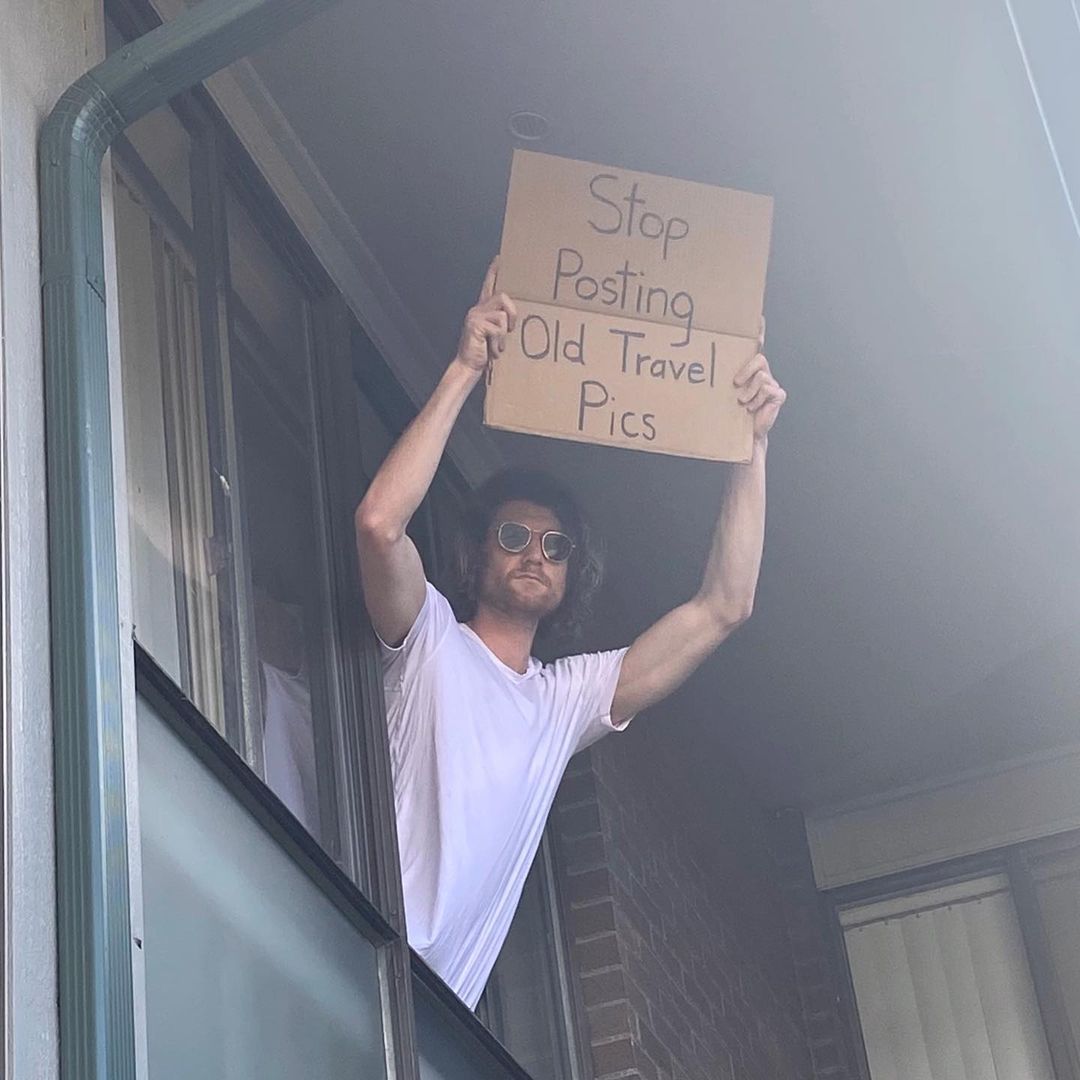 Stop
Posting
Old Travel
Pics